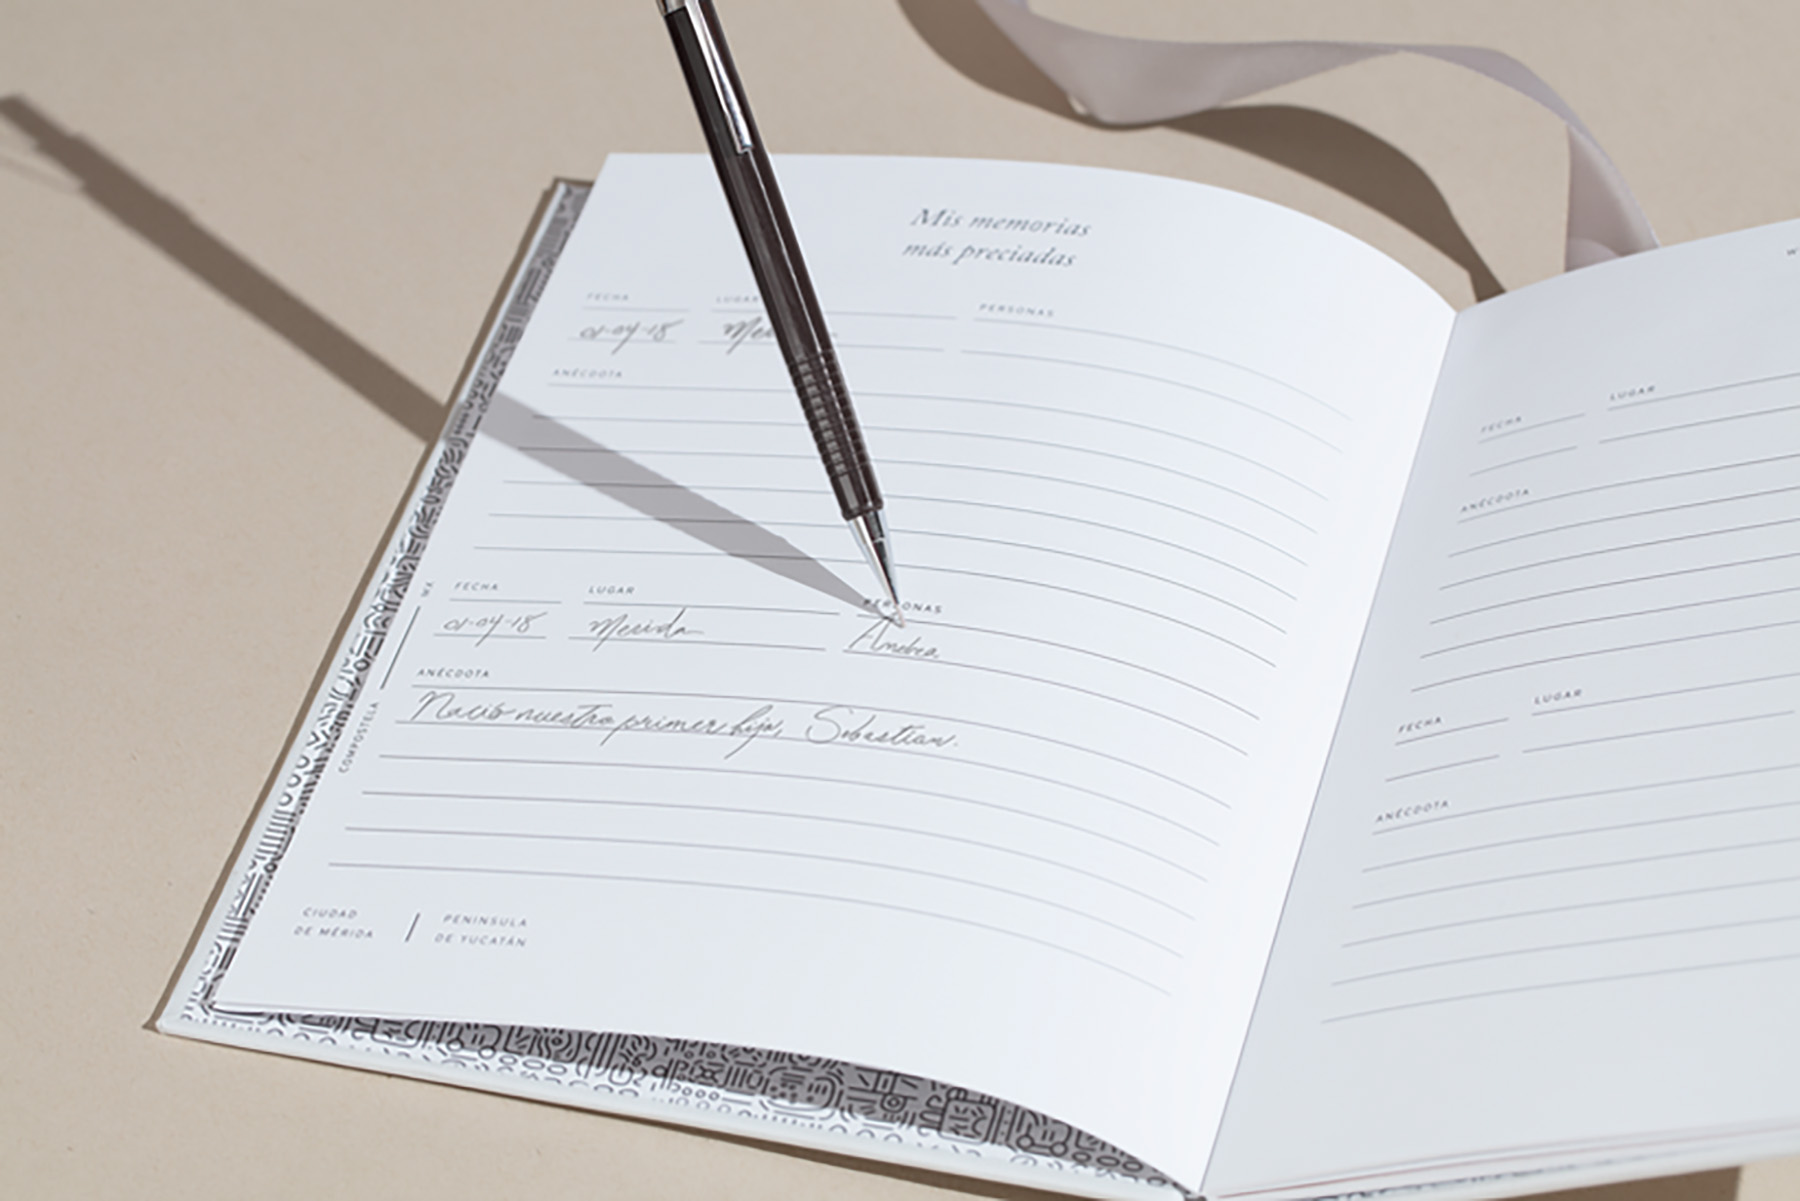 Mis memorias
más preciadas
FECHA LUGAR PERSONAS
01-04-18
ANÉCDOTA
FECHA LUGAR PERSONAS
01-04-18 Merida
ANÉCDOTA
Nació nuestro primer hijo, Sebastian.
CIUDAD
DE MÉRIDA
PENINSULA
DE YUCATÁN
COMPOSTELA MX
FECHA LUGAR
ANÉCDOTA
FECHA LUGAR
ANÉCDOTA